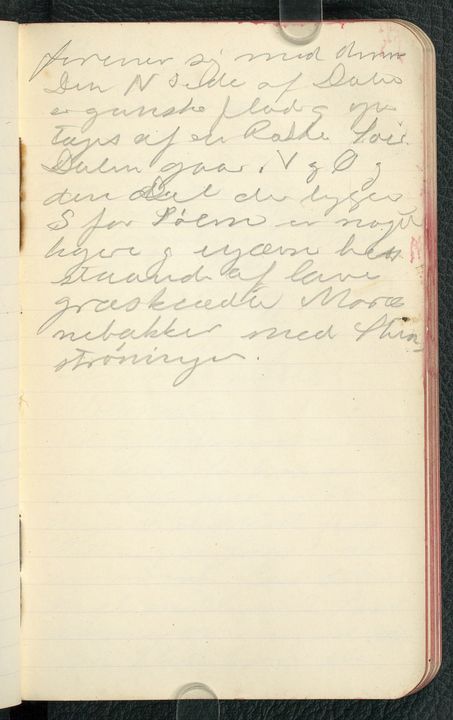 forener sig med denne
Den N Side af Dalen
er ganske flad og op
tages af en Række Søer.
Dalen gaar i V og Ø og
den Del der ligger
S for Søerne er noget
højere og ujævn be
staaende af lave
græsklædte Moræ
nebakker med Sten
strøninger.